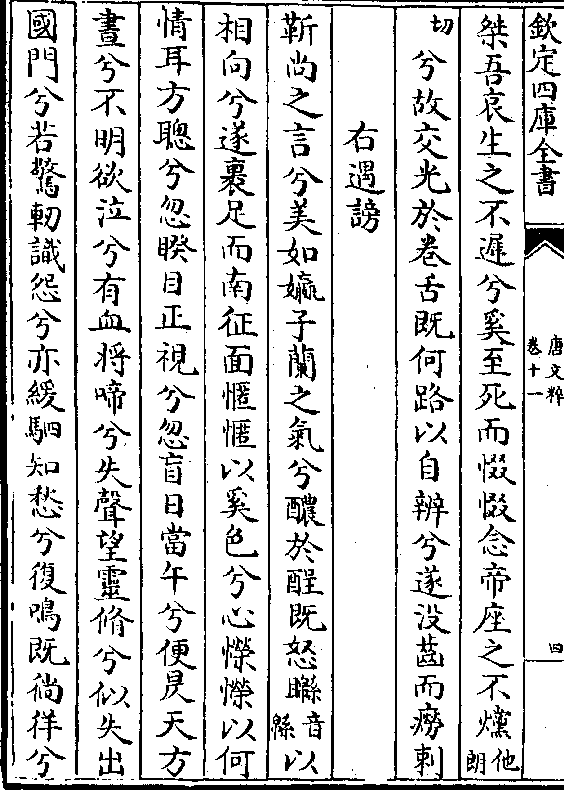 欽定四庫全書
唐文粹
卷十一
四
桀吾哀生之不遲兮奚至死而惙惙念帝座之不爣他朗
切兮故交光於卷舌既何路以自辨兮遂没齒而癆刺
右遇謗
靳尚之言兮美如嬴子蘭之氣兮醲於酲既怒䜌音緜以
相向兮遂裹足而南征面愝愝以奚色兮心爍爍以何
情耳方聰兮忽睽目正視兮忽盲日當午兮便昃天方
晝兮不明欲泣兮有血將啼兮失聲望靈脩兮似失出
國門兮若驚軔識怨兮亦緩駟知愁兮復鳴既徜徉兮